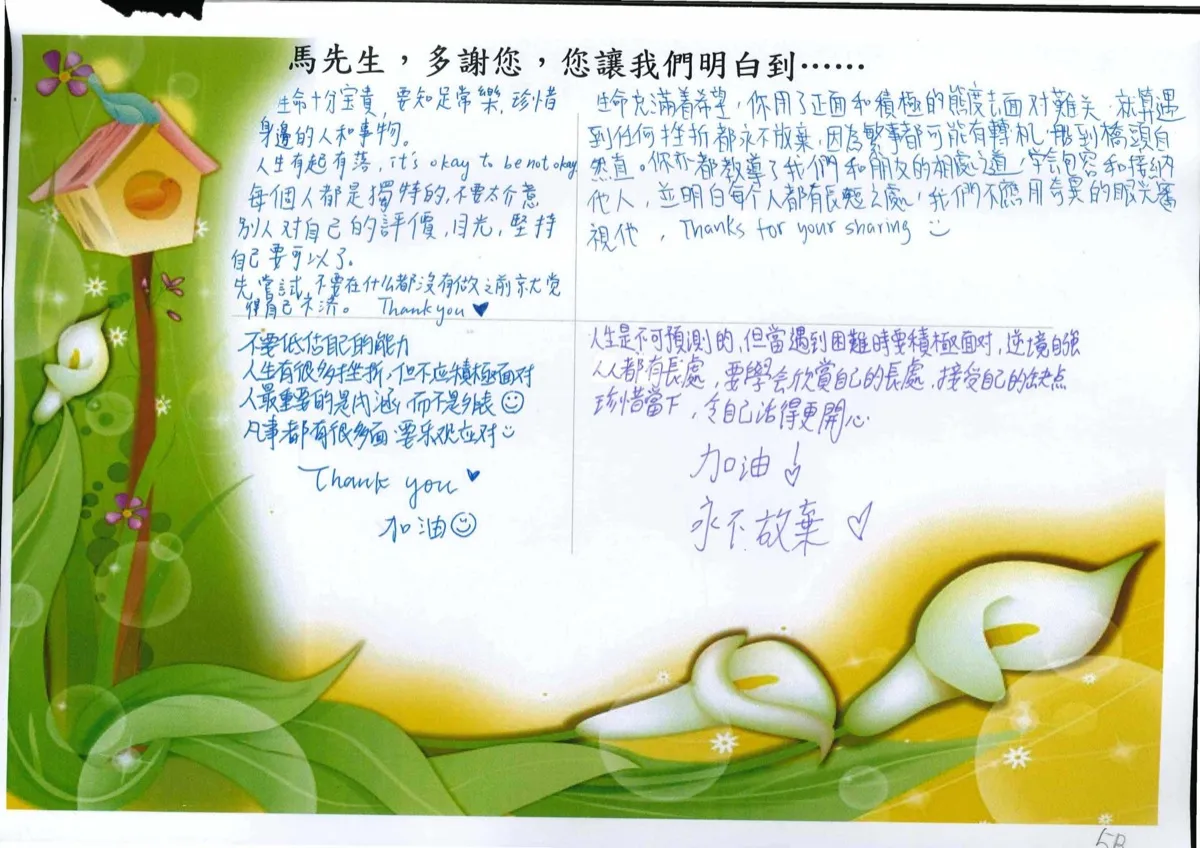 馬先生，多謝您，您讓我們明白到……
生命十分宝貴，要知足常樂，珍惜
身邊的人和事物。
人生有起有落，it's okay to be not okay
每個人都是獨特的，不要太介意
別人对自己的評價，目光，堅持
自己要可以了。
先嘗試，不要在什么都沒有做之前就觉
得自己未济。 Thank you
生命充滿着希望，你用了正面和積極的態度去面对難关，就算遇
到任何挫折都永不放棄，因為繁事都可能有轉机，船到橋頭自
然直。你亦都教導了我們和朋友的相處之道，学会包容和接納
他人，並明白每个人都有長短之處，我們不應用奇異的眼光
視他，Thanks for your sharing
不要低估自己的能力
人生有很多挫折，但不应積極面対
人最重要的是內涵，而不是外表
凡事都有很多面，要乐观应对
Thank you
加油
人生是不可預測的，但當遇到困難時要積極面对，逆境自強
人人都有長處，要學會欣賞自己的長處，接受自己的缺点
珍惜當下，令自己活得更開心
加油！
永不放棄
5B